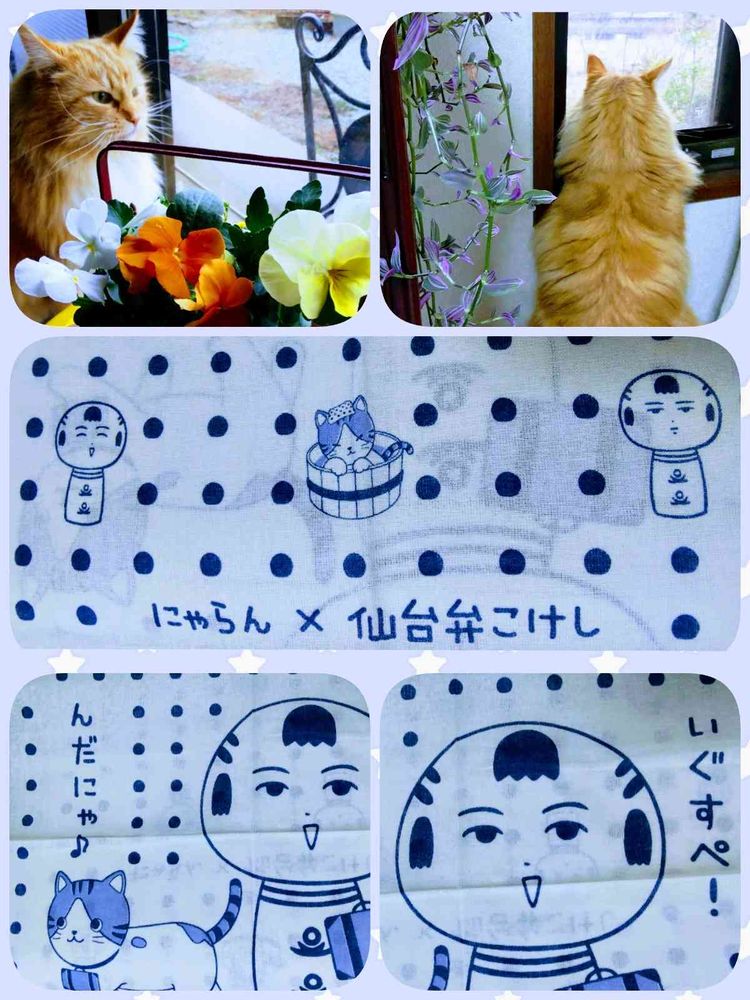 にゃらん × 仙台弁こけし
んだにゃ♪
いぐすぺ!